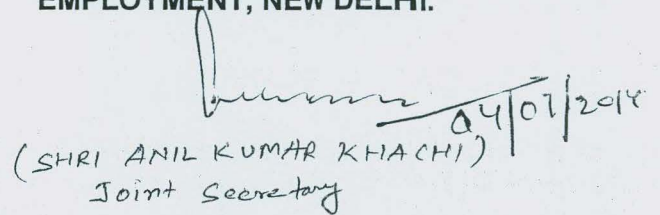 EMPLOYMENT, NEW DELHI.
04/07/2014
(SHRI ANIL KUMAR KHACHI)
Joint Secretary